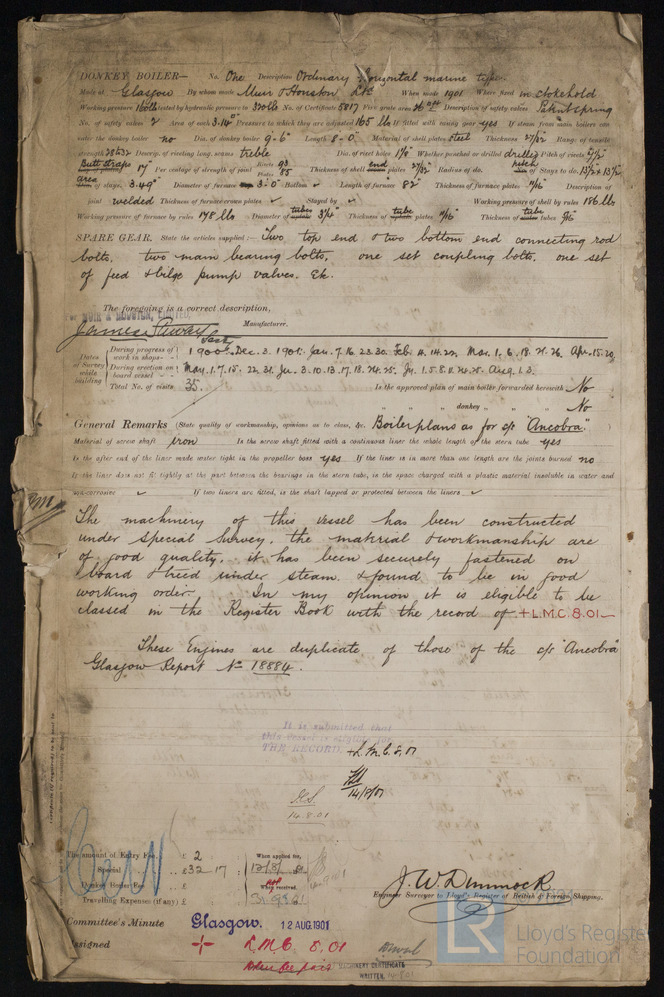 DONKEY BOILER— No. One Description Ordinary Horizontal marine type
Made at Glasgow By whom made Muir & Houston Ltd When made 1901 Where fixed in stokehold
Working pressure 160 lbs tested by hydraulic pressure to 320 lbs No. of Certificate 5817 Fire grate area 26 Description of safety valves Patent spring
No. of safety valves 2 Area of each 3.14 Pressure to which they are adjusted 165 lbs If fitted with easing gear yes If steam from main boilers can
enter the donkey boiler no Dia. of donkey boiler 9-6" Length 8-0" Material of shell plates steel Thickness 27/32 Range of tensile
strength 28 & 32 Descrip. of riveting long. seams treble Dia. of rivet holes Whether punched or drilled drilled Pitch of rivets
Butt straps 17" Per centage of strength of joint Rivets 93 Plates 85 Thickness of shell end plates Radius of do. pitch of Stays to do. 13½ × 13½
area of stays, 3.49 Diameter of furnace 3'.0" Bottom ✓ Length of furnace 82" Thickness of furnace plates 11/16" Description of
joint welded Thickness of furnace crown plates ✓ Stayed by ✓ Working pressure of shell by rules 186 lbs
Working pressure of furnace by rules 178 lbs Diameter of tubes 3¼" Thickness of tube plates 11/16" Thickness of tube tubes
SPARE GEAR. State the articles supplied:— Two top end & two bottom end connecting rod
bolts, two main bearing bolts, one set coupling bolts, one set
of feed & bilge pump valves. Etc.
The foregoing is a correct description,
For MUIR & HOUSTON, LIMITED,
Manufacturer.
Dates of Survey while building
During progress of work in shops - - 1900. Dec. 3. 1901. Jan. 7. 16. 23. 30. Feb. 4. 14. 22. Mar. 1. 6. 18. 21. 26. Apr. 15. 20.
During erection on board vessel - - May. 1. 7. 15. 22. 31. Ju. 3. 10. 13. 17. 18. 24. 25. Jy. 1. 5. 8. 11. 24. 25. Aug. 1. 3.
Total No. of visits 35. Is the approved plan of main boiler forwarded herewith No
" " " donkey " " " No
General Remarks (State quality of workmanship, opinions as to class, &c. Boiler plans as for s/s "Ancobra"
Material of screw shaft iron Is the screw shaft fitted with a continuous liner the whole length of the stern tube yes
Is the after end of the liner made water tight in the propeller boss yes If the liner is in more than one length are the joints burned no
If the liner does not fit tightly at the part between the bearings in the stern tube, is the space charged with a plastic material insoluble in water and
non-corrosive ✓ If two liners are fitted, is the shaft lapped or protected between the liners ✓
The machinery of this vessel has been constructed
under special survey, the material & workmanship are
of good quality, it has been securely fastened on
board & tried under steam & found to be in good
working order. In my opinion it is eligible to be
classed in the Register Book with the record of + L.M.C. 8.01
These Engines are duplicate of those of the s/s "Ancobra"
Glasgow Report No 18884.
It is submitted that
this vessel is eligible for
THE RECORD. + L.M.C. 8.01
14/8/01
14.8.01
The amount of Entry Fee £ 2 When applied for,
Special £ 32 17
Donkey Boiler Fee £ When received,
Travelling Expenses (if any) £
J. W. Dimmock
Engineer Surveyor to Lloyd's Register of British & Foreign Shipping.
Committee's Minute Glasgow. 12 AUG. 1901
Assigned + L.M.C. 8.01
MACHINERY CERTIFICATE
WRITTEN
LR Lloyd's Register
Foundation